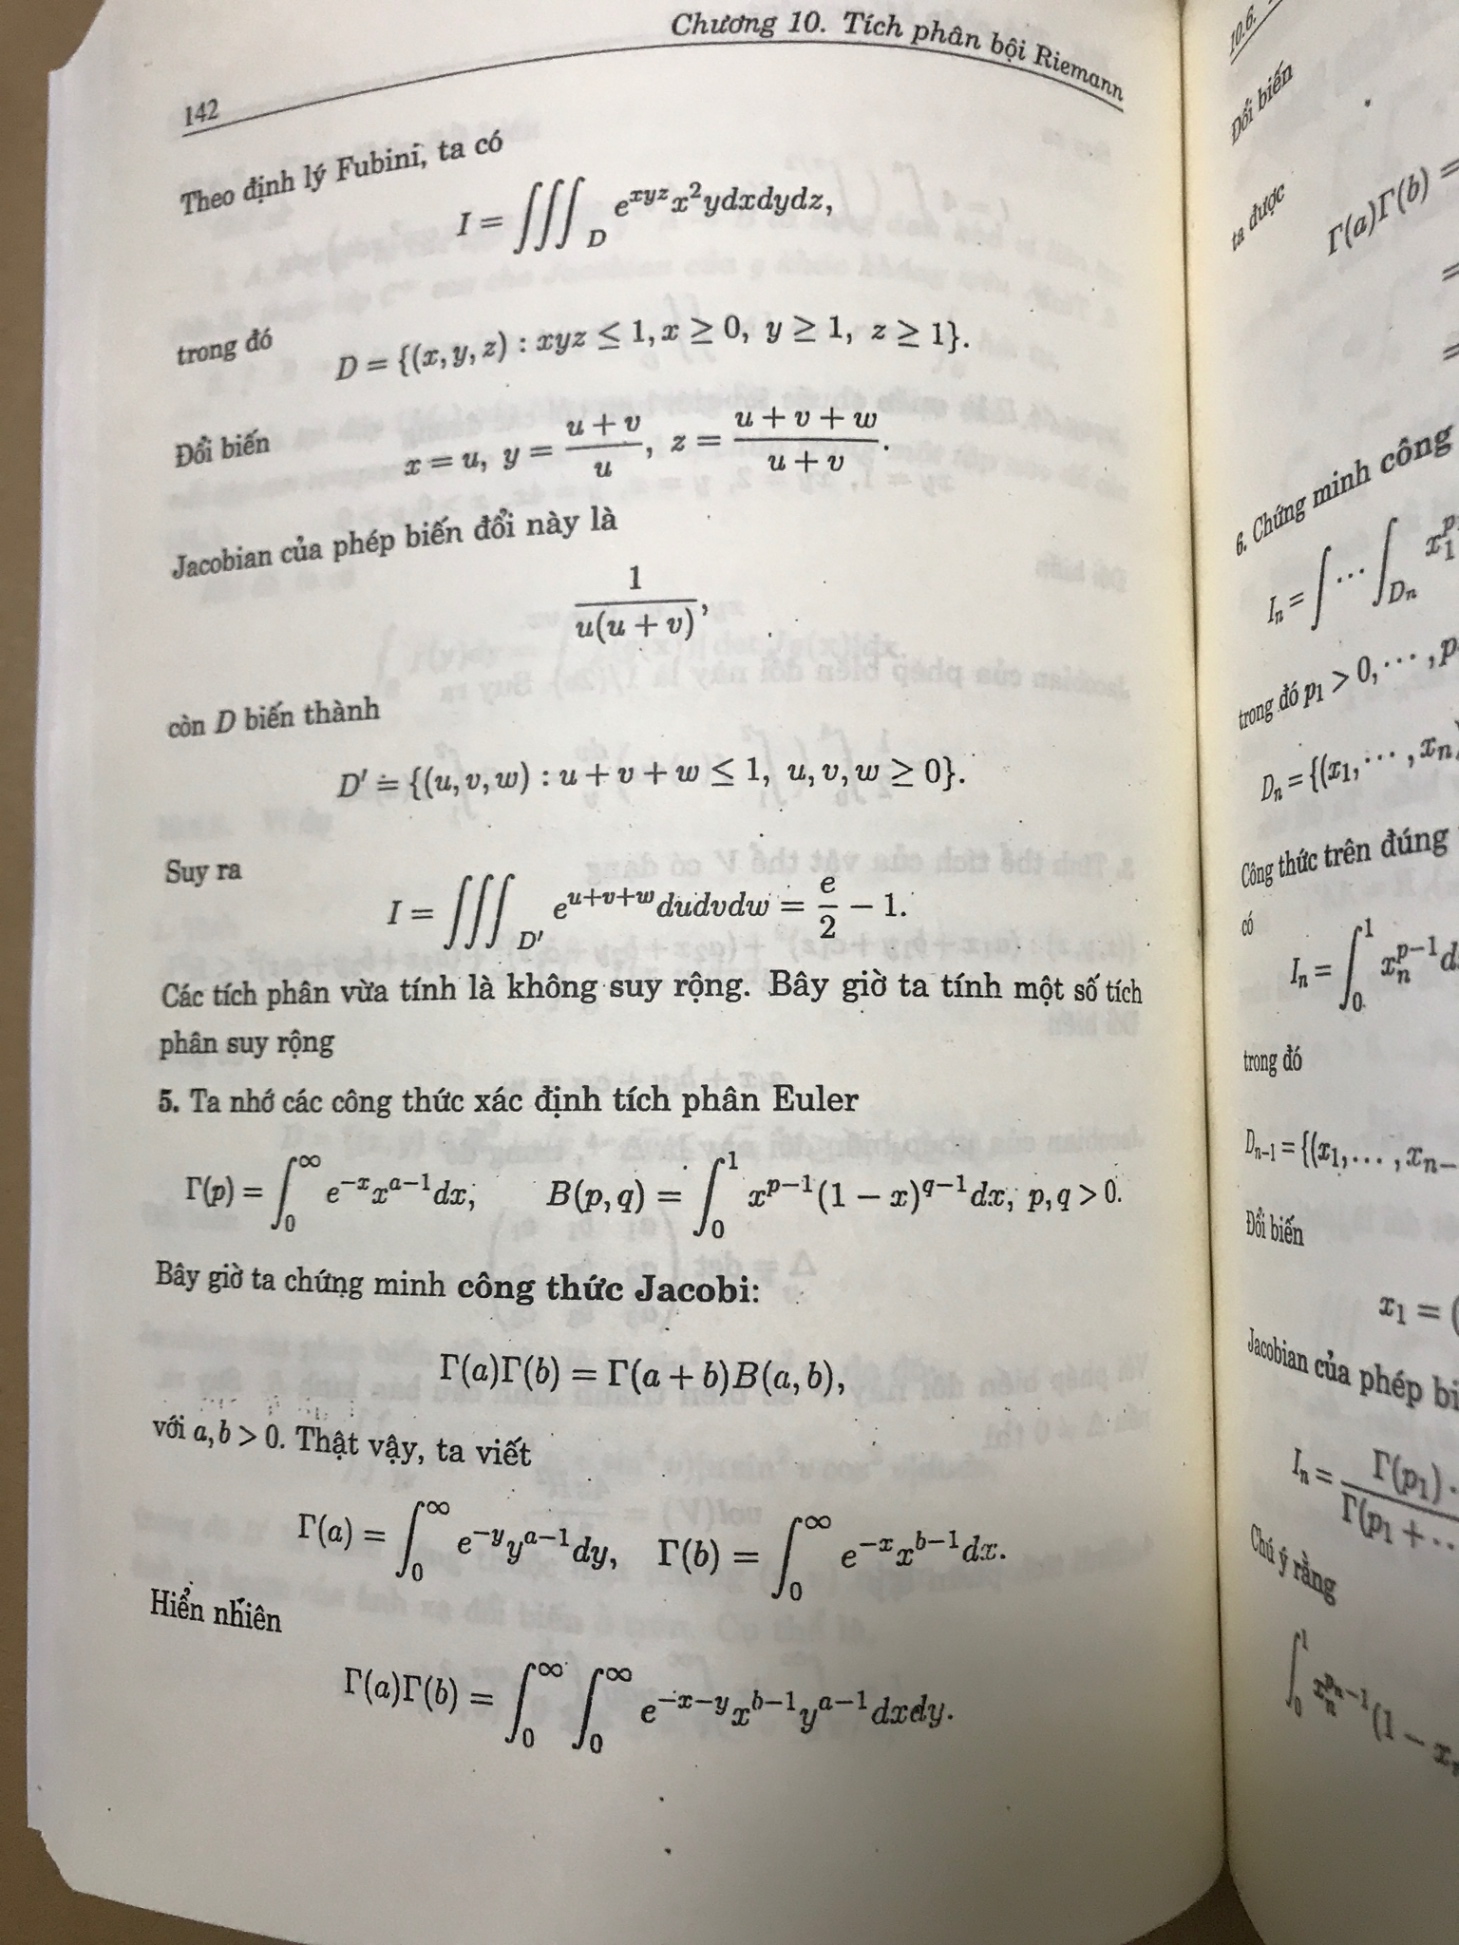 Chương 10. Tích phân bội Riemann
142
Theo định lý Fubini, ta có
I = ∭_D e^{xyz}x^2ydxdydz,
trong đó
D = {(x, y, z) : xyz ≤ 1, x ≥ 0, y ≥ 1, z ≥ 1}.
Đổi biến
x = u, y = \frac{u + v}{u}, z = \frac{u + v + w}{u + v}.
Jacobian của phép biến đổi này là
\frac{1}{u(u + v)},
còn D biến thành
D' = {(u, v, w) : u + v + w ≤ 1, u, v, w ≥ 0}.
Suy ra
I = ∭_{D'} e^{u+v+w}dudvdw = \frac{e}{2} − 1.
Các tích phân vừa tính là không suy rộng. Bây giờ ta tính một số tích
phân suy rộng
5. Ta nhớ các công thức xác định tích phân Euler
Γ(p) = ∫_0^∞ e^{-x}x^{a-1}dx, B(p, q) = ∫_0^1 x^{p-1}(1 − x)^{q-1}dx, p, q > 0.
Bây giờ ta chứng minh công thức Jacobi:
Γ(a)Γ(b) = Γ(a + b)B(a, b),
với a, b > 0. Thật vậy, ta viết
Γ(a) = ∫_0^∞ e^{-y}y^{a-1}dy, Γ(b) = ∫_0^∞ e^{-x}x^{b-1}dx.
Hiển nhiên
Γ(a)Γ(b) = ∫_0^∞ ∫_0^∞ e^{-x-y}x^{b-1}y^{a-1}dxdy.
10.6.
Đổi biến
ta được
Γ(a)Γ(b) =
=
=
6. Chứng minh công
I_n = ∫ ⋯ ∫_{D_n} x_1^p
trong đó p_1 > 0, ⋯ , p
D_n = {(x_1, ⋯ , x_n)
Công thức trên đúng
có
I_n = ∫_0^1 x_n^{p-1}d
trong đó
D_{n-1} = {(x_1, … , x_{n-
Đổi biến
x_1 = (
Jacobian của phép bi
I_n = \frac{Γ(p_1) ·}{Γ(p_1 + ⋯}
Chú ý rằng
∫_0^1 x_n^{p_n-1}(1 − x_n